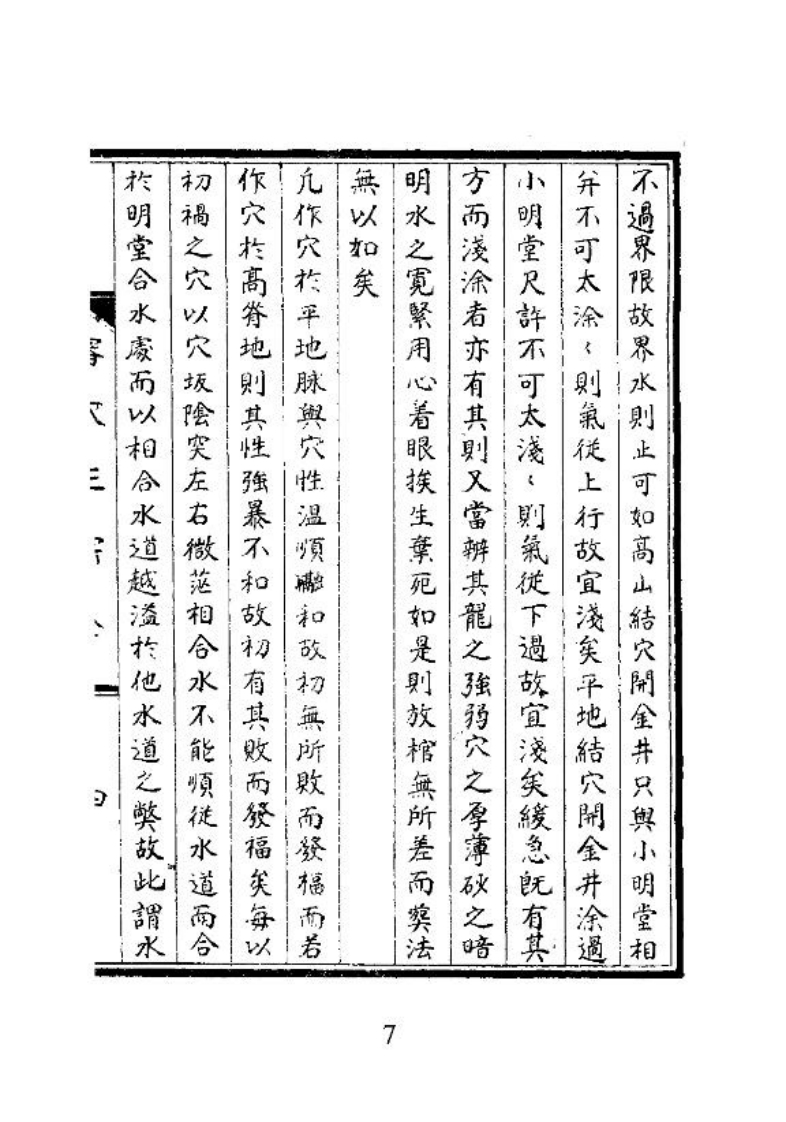 不過界限故界水則止可如高山結穴開金井只與小明堂相
弁不可太涂〻則氣從上行故宜淺矣平地結穴開金井涂過
小明堂尺許不可太淺〻則氣從下過故宜淺矣緩急既有其
方而淺涂者亦有其則又當辨其龍之強弱穴之厚薄砂之暗
明水之寛緊用心着眼挨生棄死如是則放棺無所差而葬法
無以如矣
凢作穴於平地脉與穴性溫順融和故初無所敗而發福而若
作穴於高脊地則其性強暴不和故初有其敗而發福矣每以
初禍之穴以穴坂陰突左右微茫相合水不能順從水道而合
於明堂合水處而以相合水道越溢於他水道之弊故此謂水
四
7